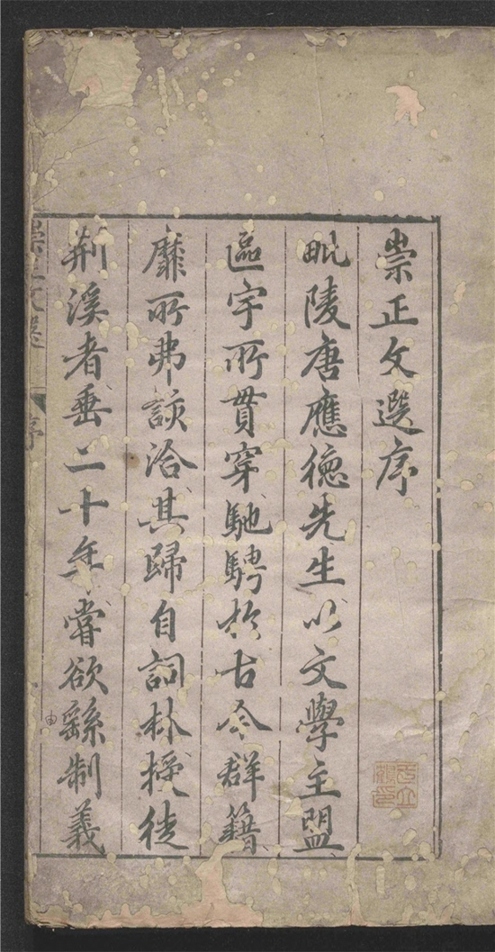 崇正文選序
毗陵唐應德先生以文學主盟
區宇所貫穿馳騁於古今群籍
靡所弗該洽其歸自詞林授徒
荊溪者垂二十年嘗欲繇制義
由
崇正文選
序